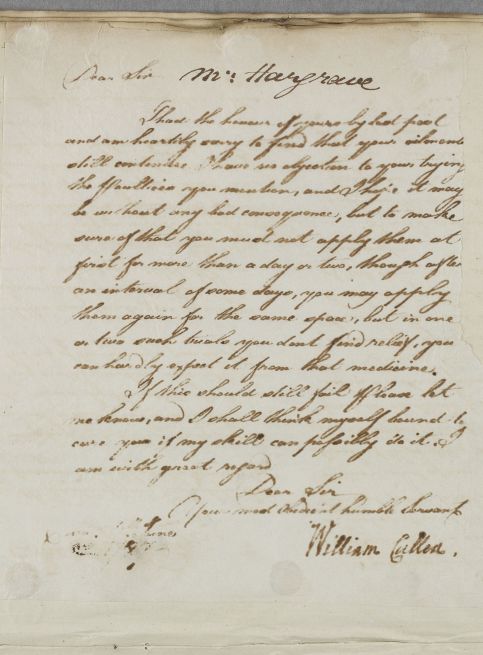 Dear Sir Mr. Hargrave
I had the honour of yours by last post
and am heartily sorry to find that your ailments
still continue. I have no objection to your trying
the you mention, and I hope it may
be without any bad consequence, but to make
sure of that you must not apply them at
first for more than a day or two, though after
an interval of some days, you may apply
them again for the same space, but in one
or two such trials you dont find relief, you
can hardly expect it from that medicine.
If this should still fail Please let
me know, and I shall think myself bound to
cure you if my skill can possibly do it. I
am with great regard
Dear Sir
Your most Obedient humble Servant
William Cullen.